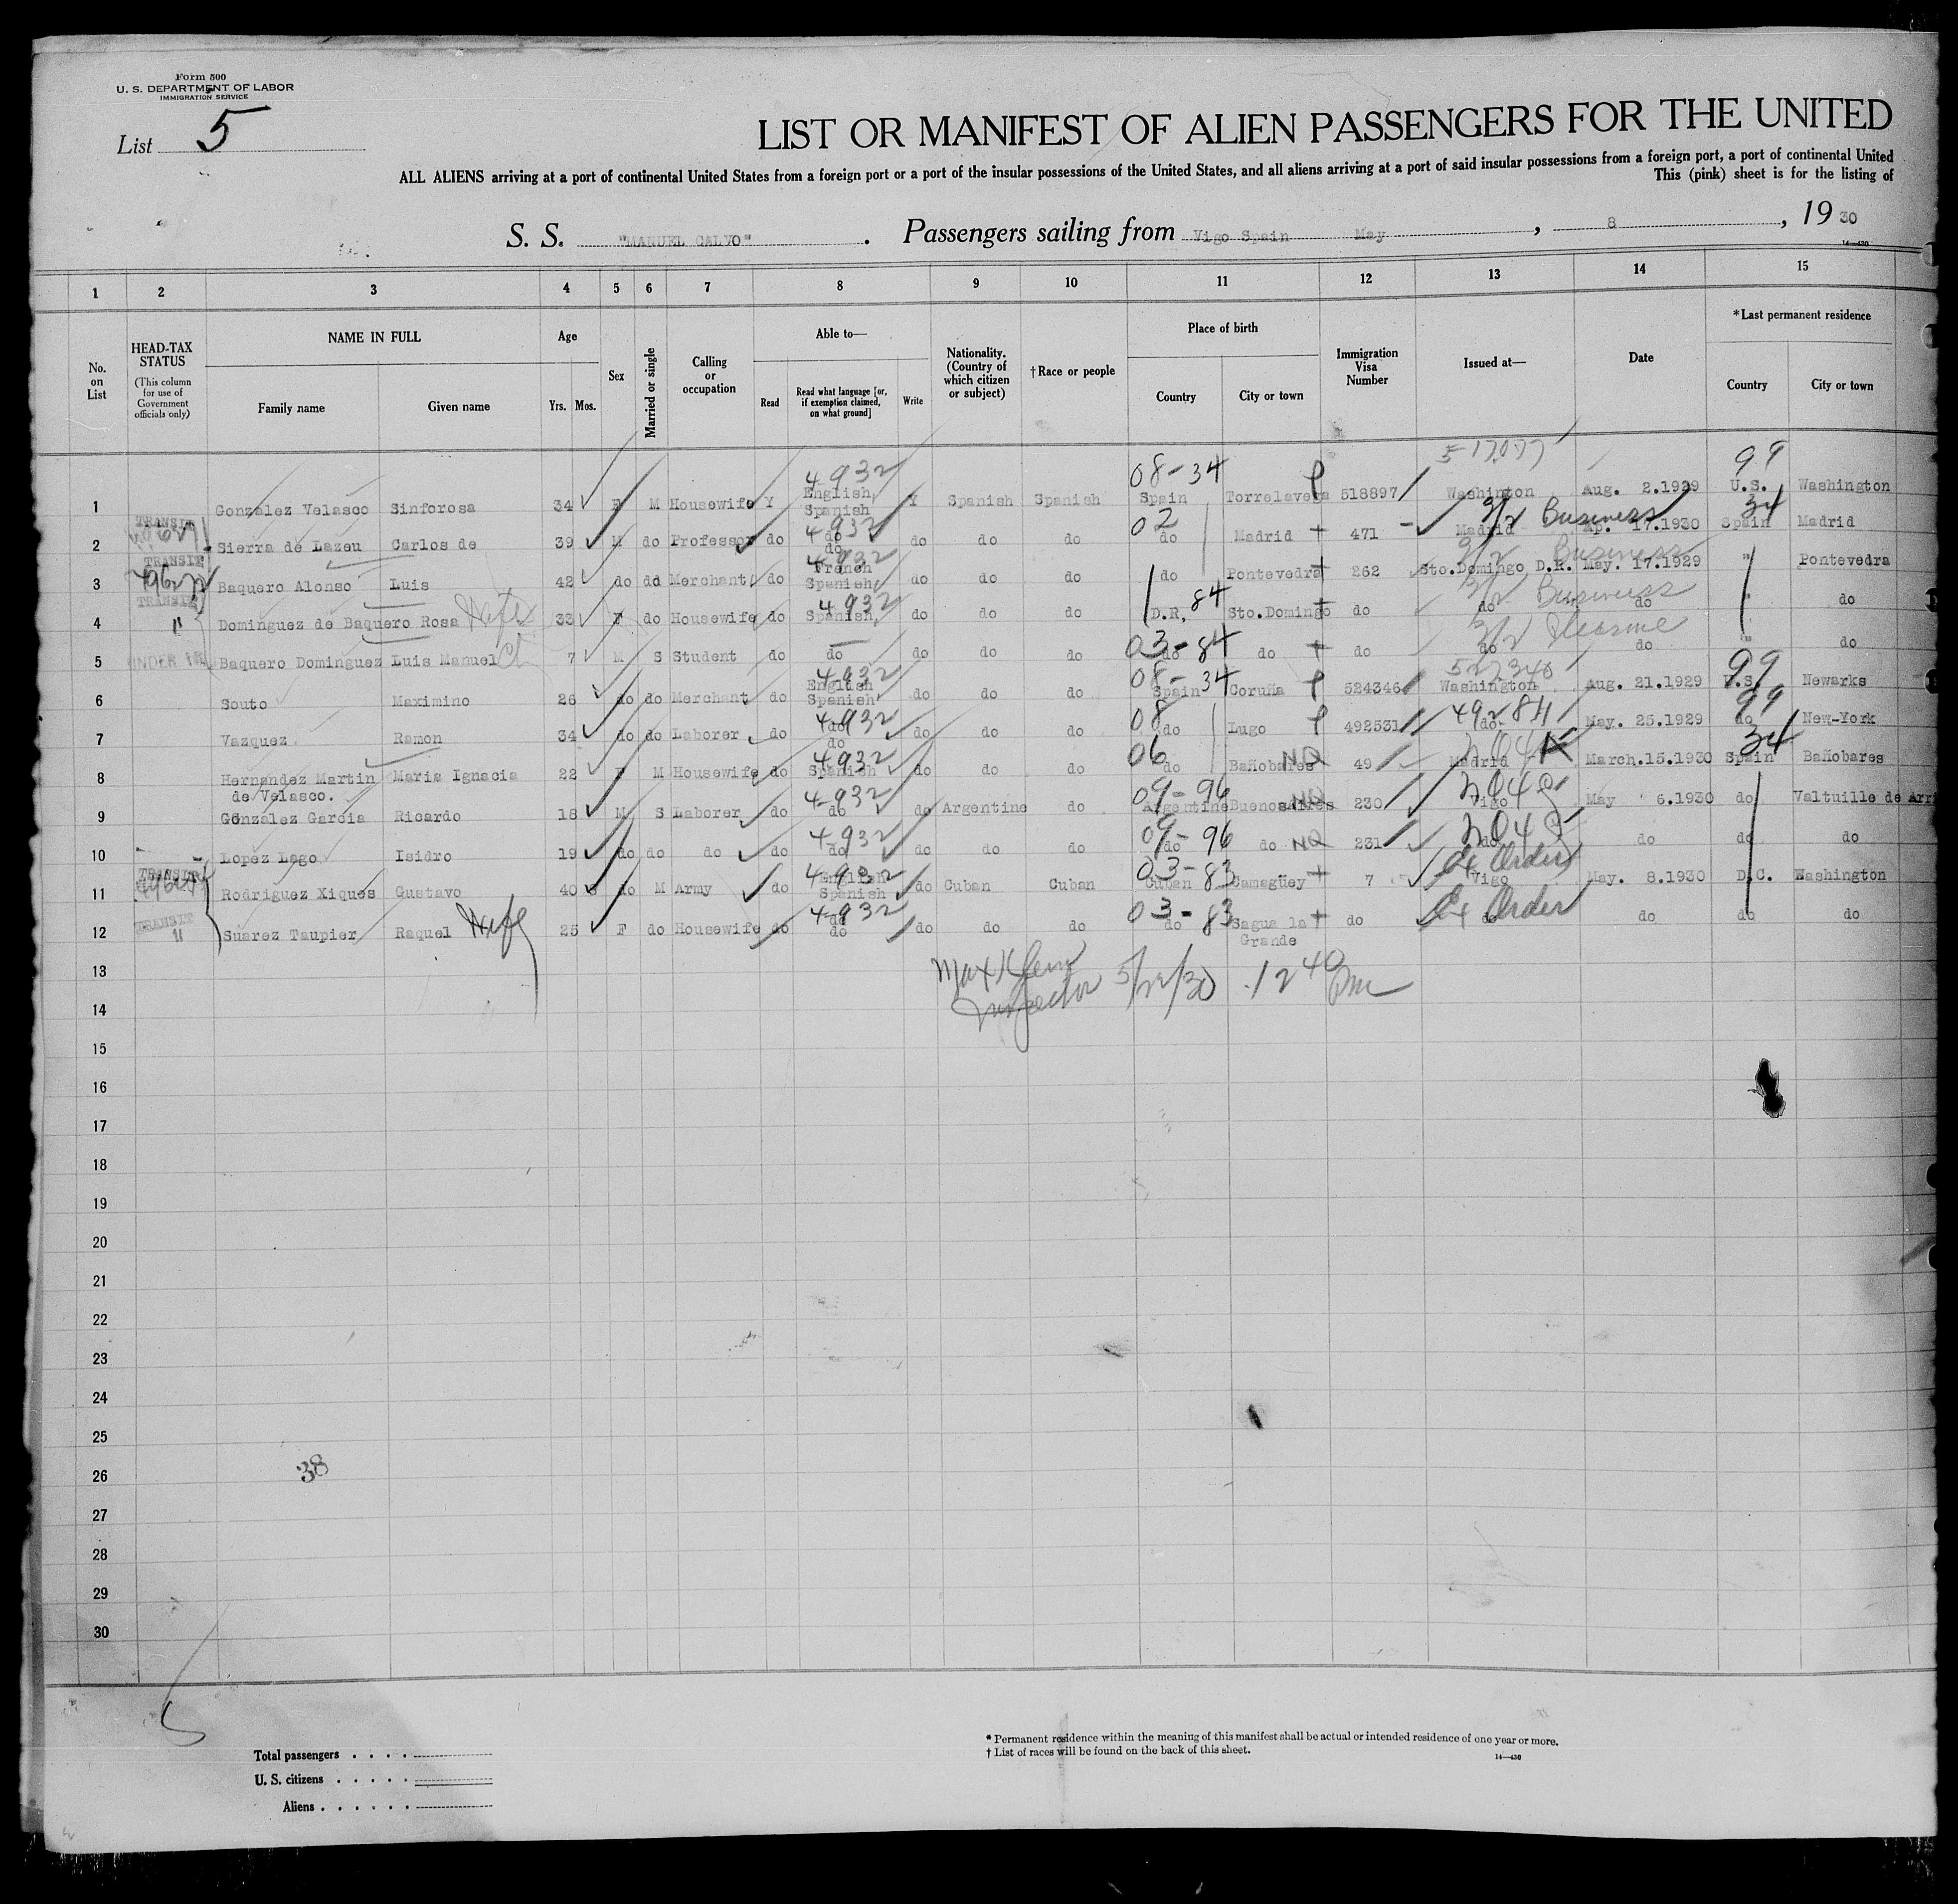 Form 500
U. S. DEPARTMENT OF LABOR
IMMIGRATION SERVICE
List 5
LIST OR MANIFEST OF ALIEN PASSENGERS FOR THE UNITED
ALL ALIENS arriving at a port of continental United States from a foreign port or a port of the insular possessions of the United States, and all aliens arriving at a port of said insular possessions from a foreign port, a port of continental United
This (pink) sheet is for the listing of
S. S. "MANUEL CALVO". Passengers sailing from Vigo Spain May, 8, 1930
14—430
1 2 3 4 5 6 7 8 9 10 11 12 13 14 15
No. on List
HEAD-TAX STATUS
(This column for use of Government officials only)
NAME IN FULL
Family name
Given name
Age
Yrs. Mos.
Sex
Married or single
Calling or occupation
Able to—
Read
Read what language [or, if exemption claimed, on what ground]
Write
Nationality. (Country of which citizen or subject)
†Race or people
Place of birth
Country
City or town
Immigration Visa Number
Issued at—
Date
*Last permanent residence
Country
City or town
4-932 08-34 99
1 González Velasco Sinforosa 34 F M Housewife Y English, Spanish Y Spanish Spanish Spain Torrelavega 518897 Washington Aug. 2.1929 U.S. Washington
TRANSIT 4-932 02 3/2 Business 34
2 Sierra de Lazeu Carlos de 39 M do Professor do do do do do do do Madrid 471 Madrid Ap. 17.1930 Spain Madrid
TRANSIT 4-932 3/2 Business
3 Baquero Alonso Luis 42 do do Merchant do French Spanish do do do do Pontevedra 262 Sto.Domingo D.R. May. 17.1929 " Pontevedra
TRANSIT 4-932 84 3/2 Business
4 " Dominguez de Baquero Rosa Wife 33 F do Housewife do Spanish, do do do D.R. Sto.Domingo do do do " do
— 03-84 3/2 Pleasure
5 UNDER Baquero Dominguez Luis Manuel Ch 7 M S Student do do do do do do do do do do " do
4-932 08-34 527340 99
6 Souto Maximino 26 do do Merchant do English Spanish do do do Spain Coruña 524346 Washington Aug. 21.1929 U.S. Newarks
4-932 08 99
7 Vazquez Ramon 34 do do Laborer do do do do do do do Lugo 492531 do May. 25.1929 do New-York
4-932 06 NQ 34
8 Hernandez Martin de Velasco. Maria Ignacia 22 F M Housewife do Spanish do do do do Bañobares 49 Madrid March.15.1930 Spain Bañobares
4-932 09-96 NQ
9 González Garcia Ricardo 18 M S Laborer do do do Argentine do Argentine Buenos Aires 230 Vigo May 6.1930 do Valtuille de Arri
4-932 09-96 NQ
10 Lopez Lago Isidro 19 do do do do do do do do do do 231 do do do do
TRANSIT 4-932 03-83 Ex Order
11 Rodriguez Xiques Gustavo 40 do M Army do English Spanish do Cuban Cuban Cuban Camagüey 7 Vigo May. 8.1930 D.C. Washington
TRANSIT 4-932 03-83 Ex Order
12 " Suarez Taupier Raquel Wife 25 F do Housewife do do do do do do Sagua la Grande do do do do do
13
Inspector 5/22/30 12 40 Pm
14
15
16
17
18
19
20
21
22
23
24
25
26
38
27
28
29
30
Total passengers . . . .
U. S. citizens . . . . .
Aliens . . . . . .
* Permanent residence within the meaning of this manifest shall be actual or intended residence of one year or more.
† List of races will be found on the back of this sheet.
14—430